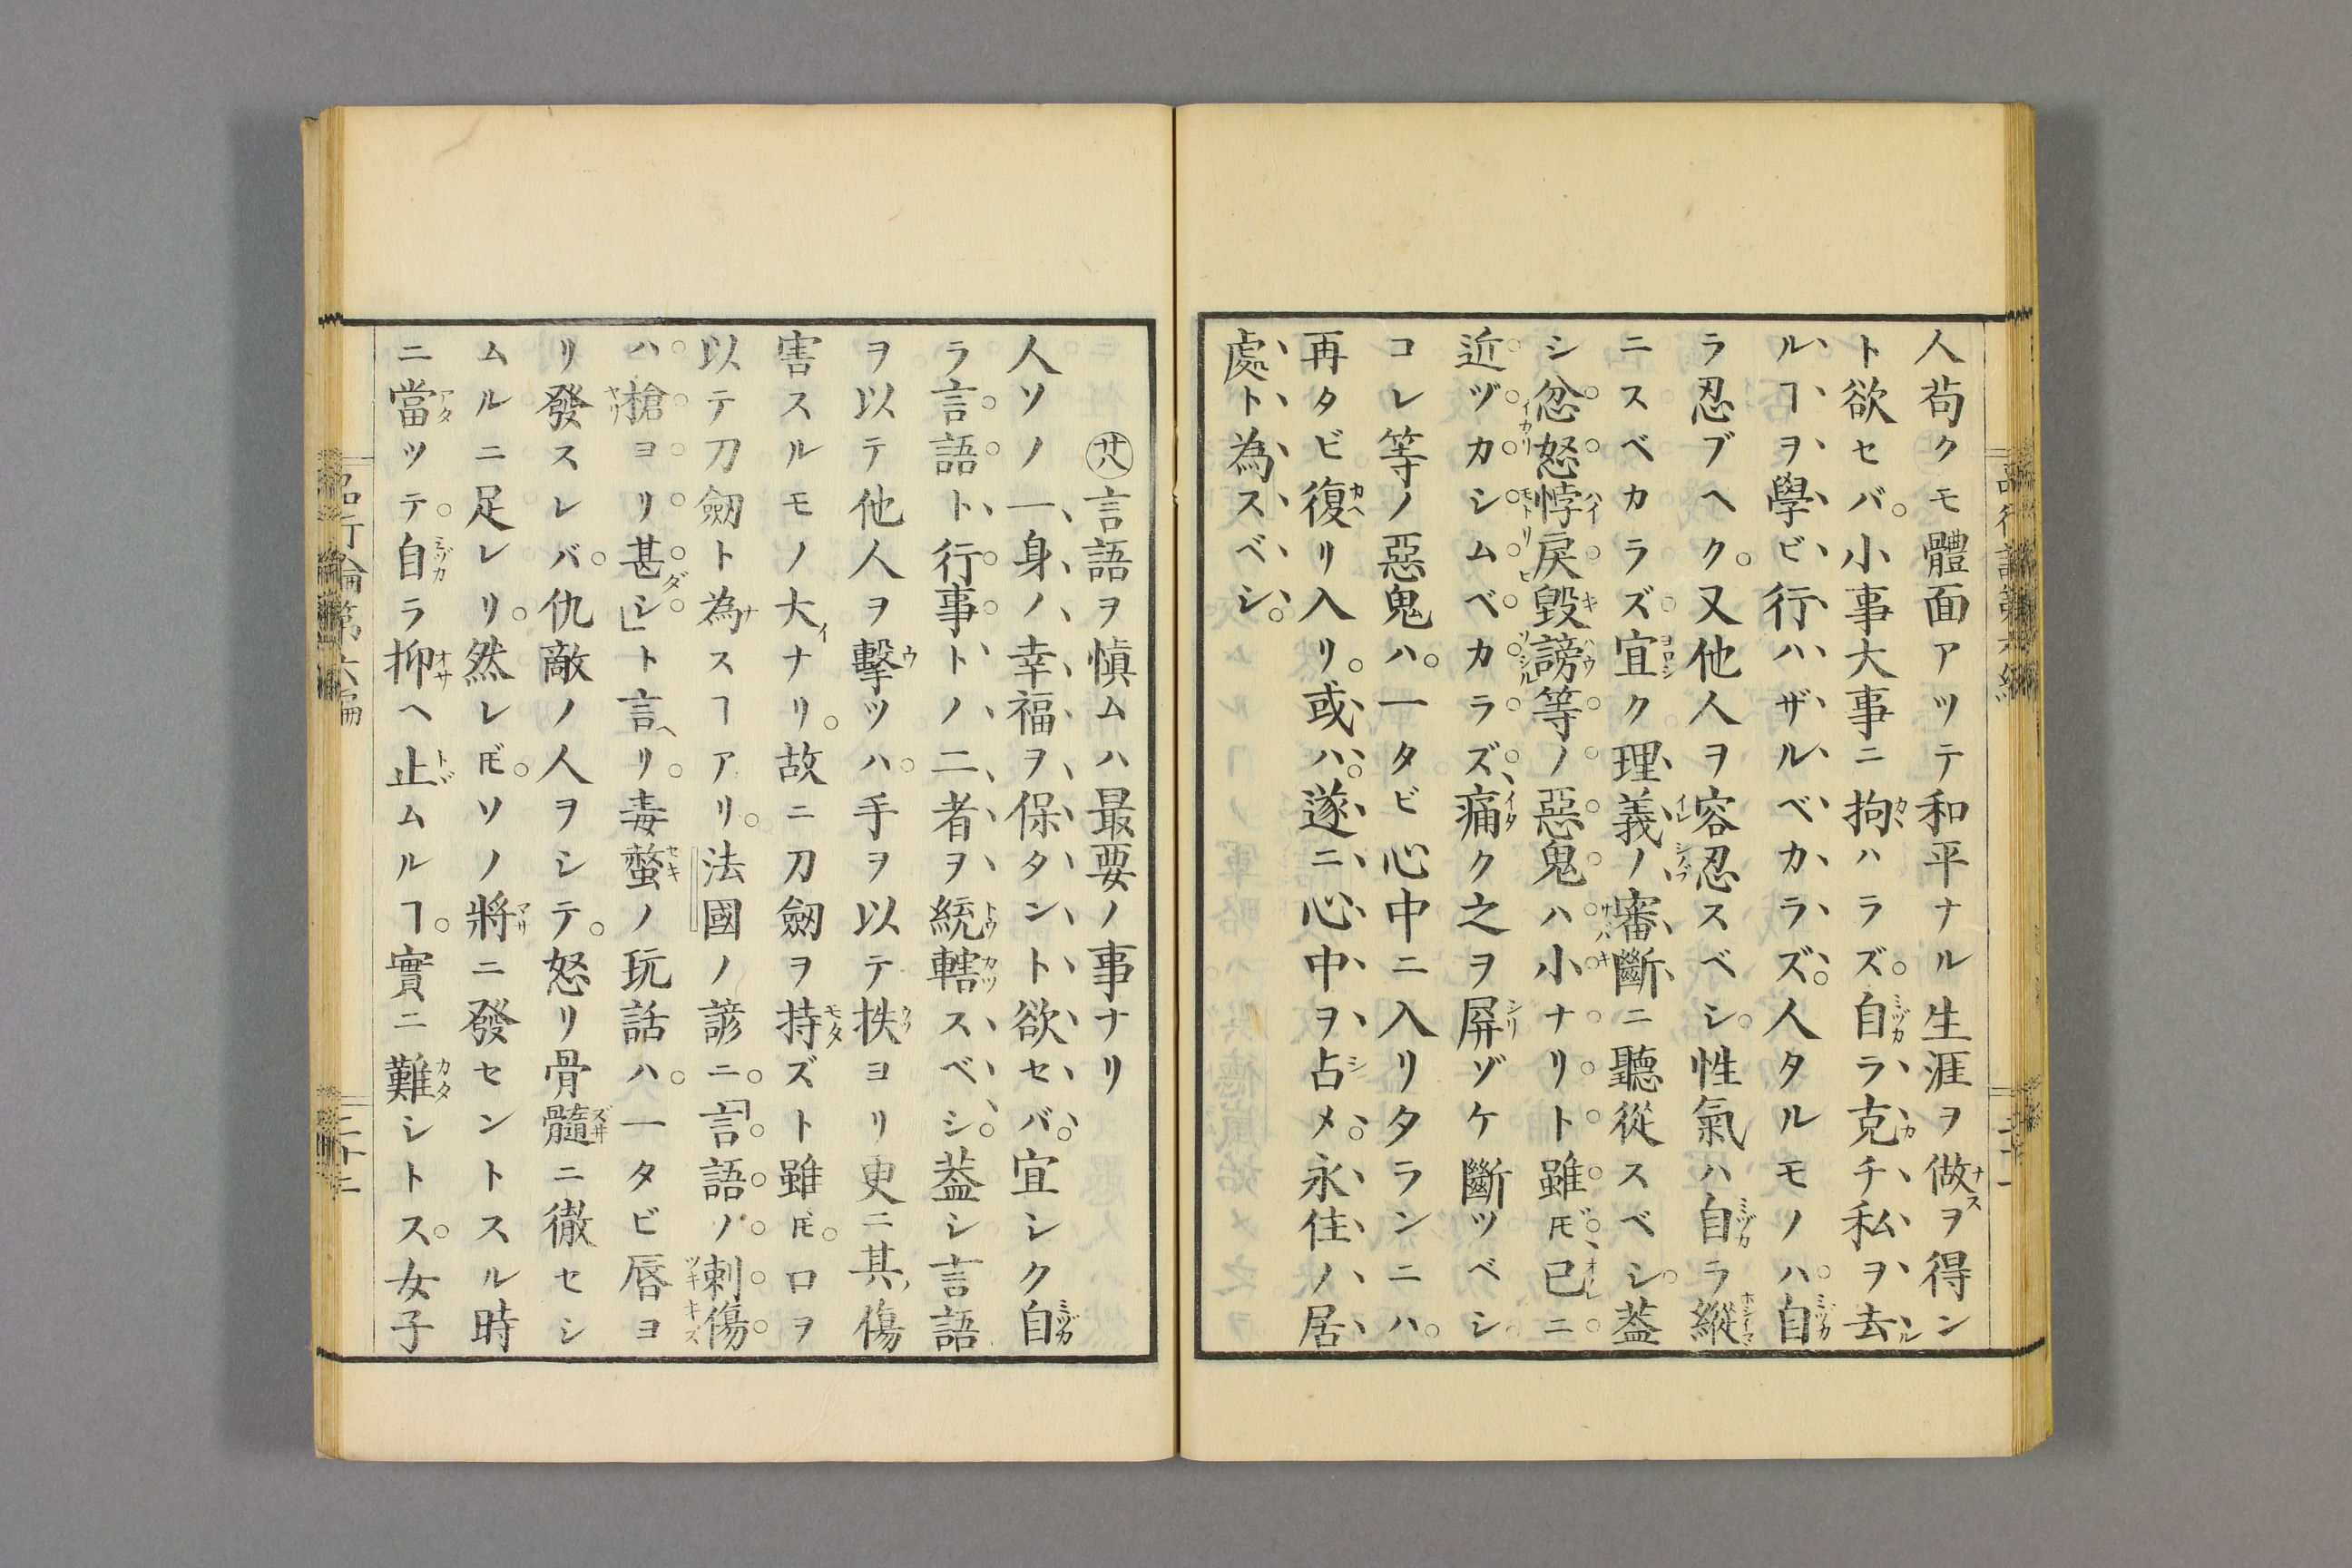 人苟クモ體面アツテ和平ナル生涯ヲ做ヲ得ン
ト欲セバ。小事大事ニ拘ハラズ。自ラ克チ私ヲ去
ルヿヲ學ビ行ハザルベカラズ。人タルモノハ。自
ラ忍ブヘク。又他人ヲ容忍スベシ。性氣ハ自ラ縱
ニスベカラズ。宜ク理義ノ審斷ニ聽從スベシ。葢
シ忿怒悖戻毀謗等ノ惡鬼ハ小ナリト雖𪜈。已ニ
近ヅカシムベカラズ。痛ク之ヲ屏ゾケ斷ツベシ。
コレ等ノ惡鬼ハ。一タビ心中ニ入リタランニハ。
再タビ復リ入リ。或ハ。遂ニ心中ヲ占メ。永住ノ居
處ト為スベシ。
㊇言語ヲ愼ムハ最要ノ事ナリ
人ソノ一身ノ幸福ヲ保タント欲セバ。宜シク自
ラ言語ト行事トノ二者ヲ統轄スベシ。葢シ言語
ヲ以テ他人ヲ擊ツハ。手ヲ以テ抶ヨリ更ニ其傷
害スルモノ大ナリ。故ニ刀劒ヲ持ズト雖𪜈。口ヲ
以テ刀劒ト為スヿアリ。法國ノ諺ニ。「言語ノ刺傷
ハ槍ヨリ甚シ」ト言リ。毒螫ノ玩話ハ。一タビ唇ヨ
リ發スレバ。仇敵ノ人ヲシテ。怒リ骨髓ニ徹セシ
ムルニ足レリ。然レ𪜈。ソノ將ニ發セントスル時
ニ當ツテ。自ラ抑ヘ止ムルヿ。實ニ難シトス。女子
品行論第六編
二十二